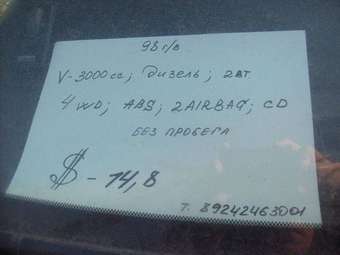 98 г/в
V-3000сс; Дизель; 2вт
4WD; ABS; 2AIRBAG; CD
БЕЗ ПРОБЕГА
$ - 14,8
т. 89242463001